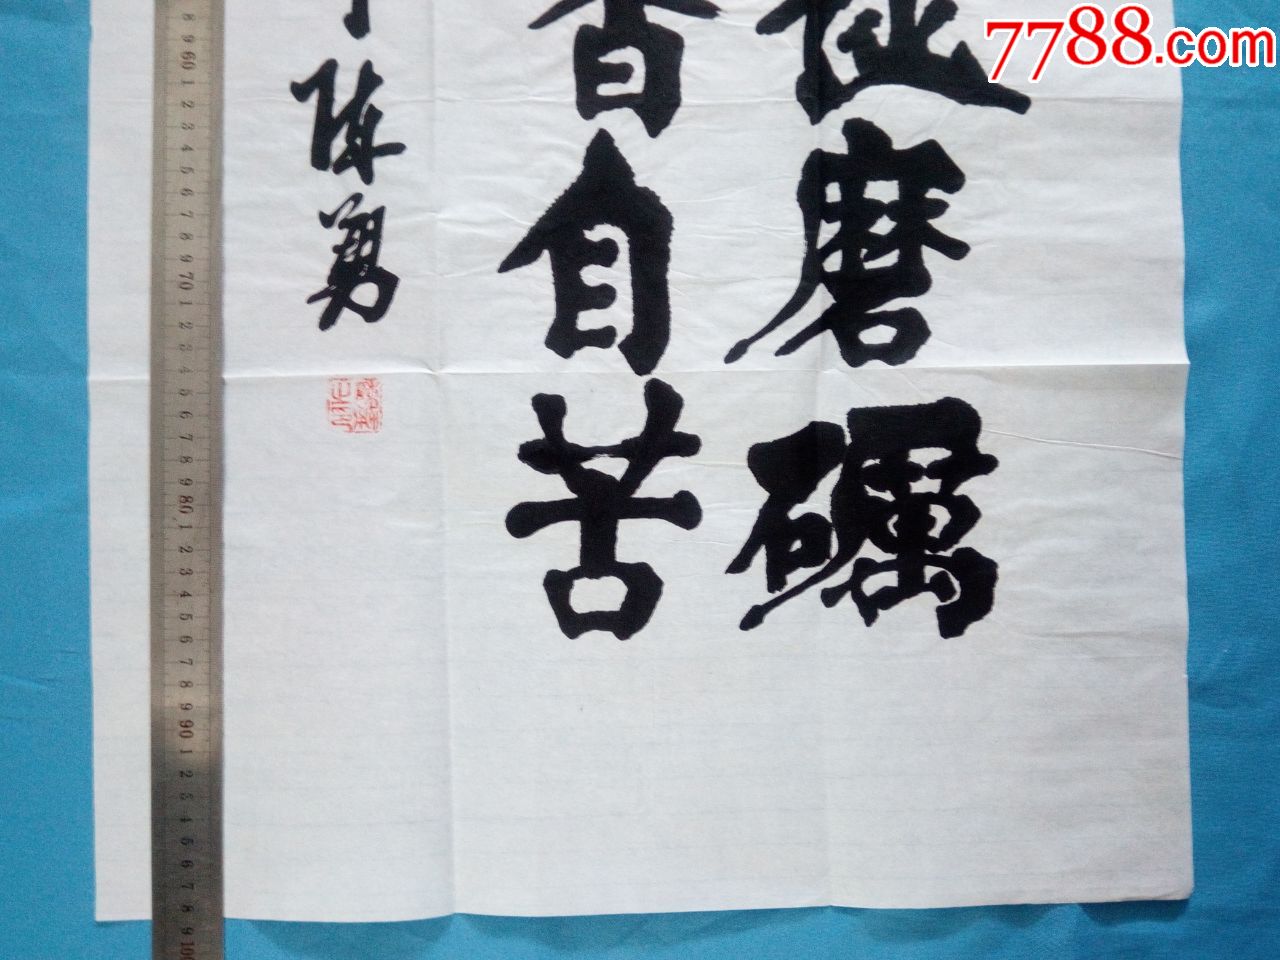 7788.com
磨礪
香自苦
陈勇
8 9 60 1 2 3 4 5 6 7 8 9 70 1 2 3 4 5 6 7 8 9 80 1 2 3 4 5 6 7 8 9 90 1 2 3 4 5 6 7 8 9 100